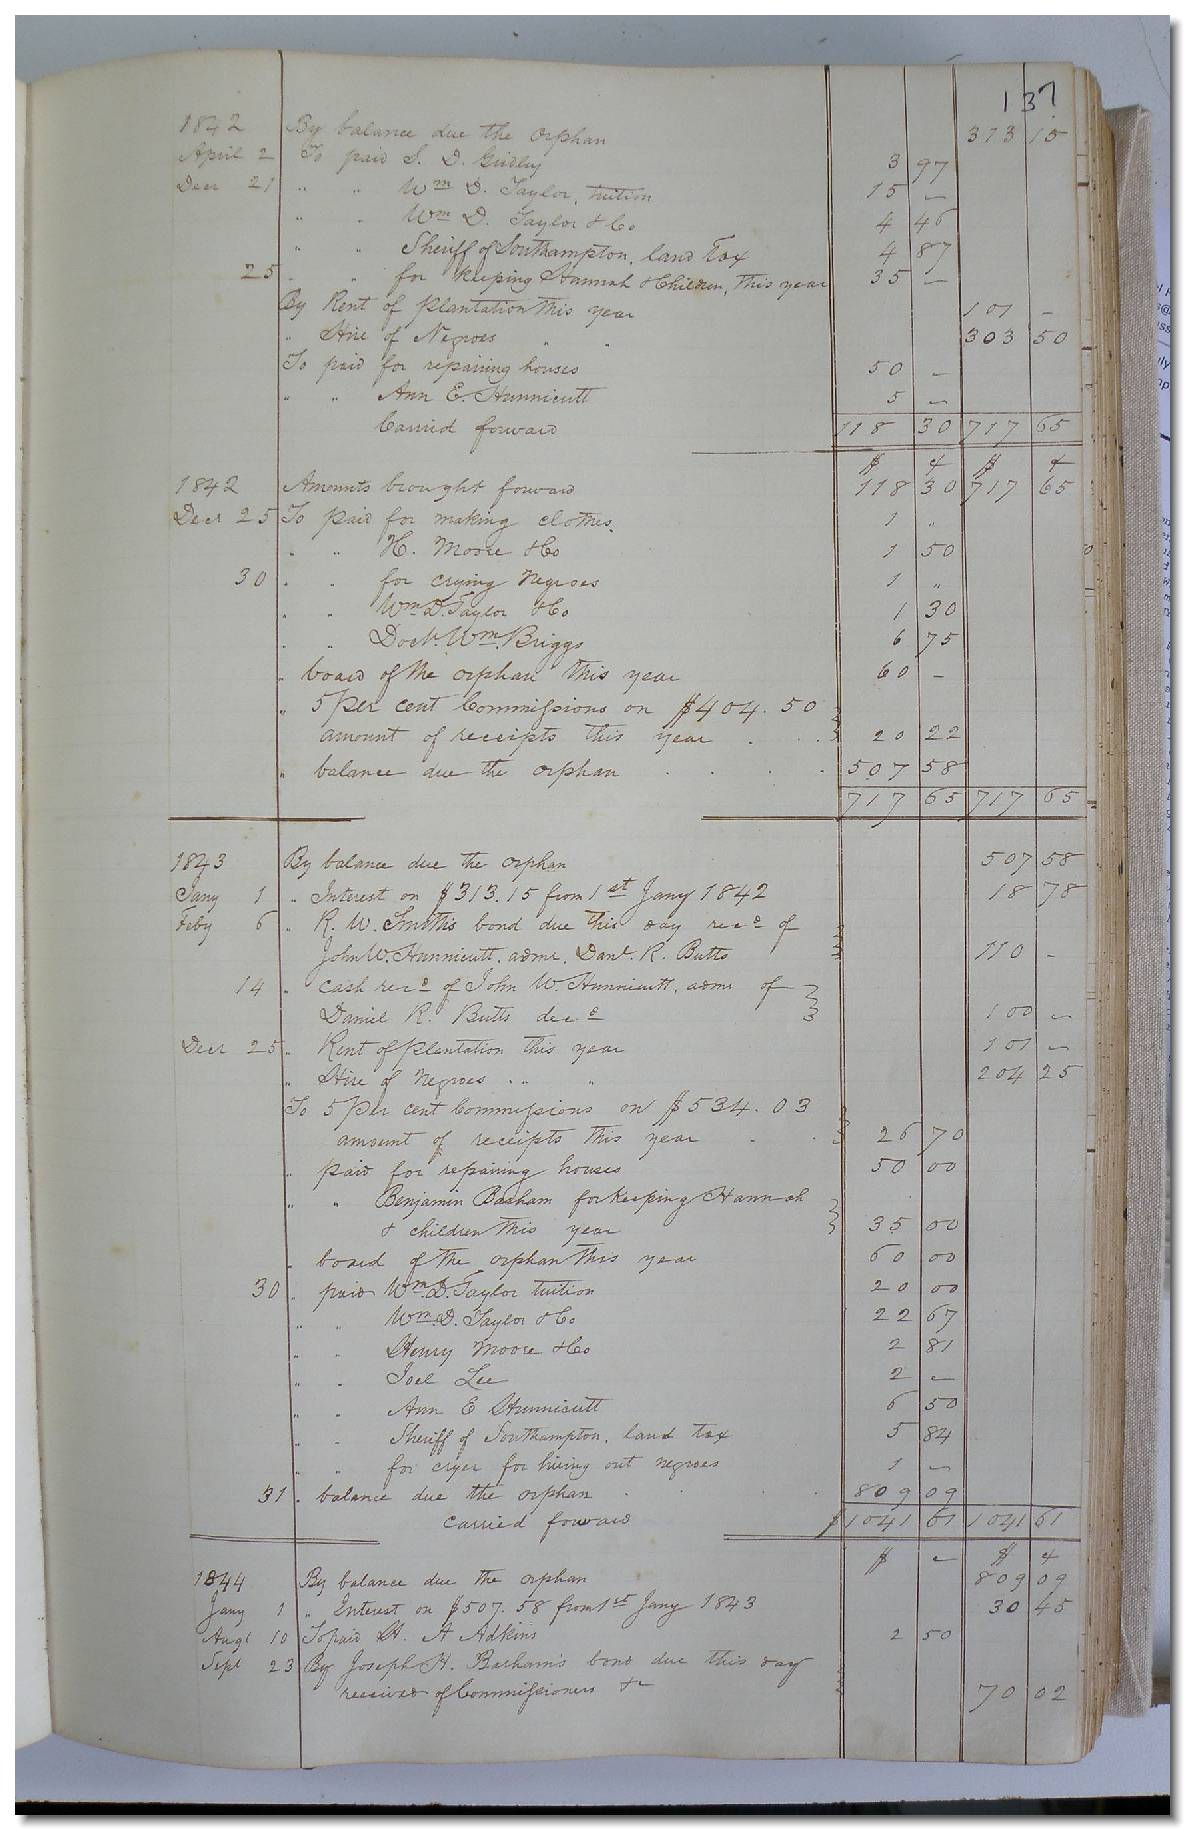 137
1842 By balance due the orphan 313 15
April 2 To paid S. D. Gridley 3 97
Decr 21 " " Wm D. Taylor, tuition 15 —
" " Wm D. Taylor & Co 4 46
" " Sheriff of Southampton, land Tax 4 87
25 " " for keeping Hannah & Children, this year 35 —
By Rent of plantation this year 101 —
" Hire of Negroes " " 303 50
To paid for repairing houses 50 —
" " Ann E. Hunnicutt 5 —
Carried forward 118 30 717 65
$ ¢ $ ¢
1842 Amounts brought forward 118 30 717 65
Decr 25 To paid for making clothes. 1 "
" " H. Moore & Co 1 50
30 " " for crying Negroes 1 "
" " Wm D. Taylor & Co 1 30
" " Doctr. Wm. Briggs 6 75
" board of the orphan this year 60 —
" 5 Per cent Commissions on $404.50
amount of receipts this year . . . 20 22
" balance due the orphan . . . . 507 58
717 65 717 65
1843 By balance due the orphan 507 58
Jany 1 " Interest on $313.15 from 1st Jany 1842 18 78
Feby 6 " R. W. Smith's bond due this day recd of
John W. Hunnicutt, admr. Danl. R. Butts 110 —
14 " Cash recd of John W. Hunnicutt, admr of
Daniel R. Butts decd 100 —
Decr 25 " Rent of plantation this year 101 —
" Hire of Negroes " " " 204 25
To 5 Per cent Commissions on $534.03
amount of receipts this year . . 26 70
" paid for repairing houses 50 00
" " Benjamin Barham for keeping Hannah
& children this year 35 00
" board of the orphan this year 60 00
30 " paid Wm D. Taylor tuition 20 00
" " Wm. D. Taylor & Co 22 67
" " Henry Moore & Co 2 81
" " Joel Lee 2 —
" " Ann E Hunnicutt 6 50
" " Sheriff of Southampton, land tax 5 84
" " for cryer for hiring out negroes 1 —
31 " balance due the orphan . . . . 809 09
carried forward $1041 61 1041 61
$ — $ ¢
1844 By balance due the orphan 809 09
Jany 1 " Interest on $507.58 from 1st Jany 1843 30 45
Augt 10 To paid H. A Adkins 2 50
Sept 23 By Joseph H. Barham's bond due this day
received of Commissioners &c 70 02